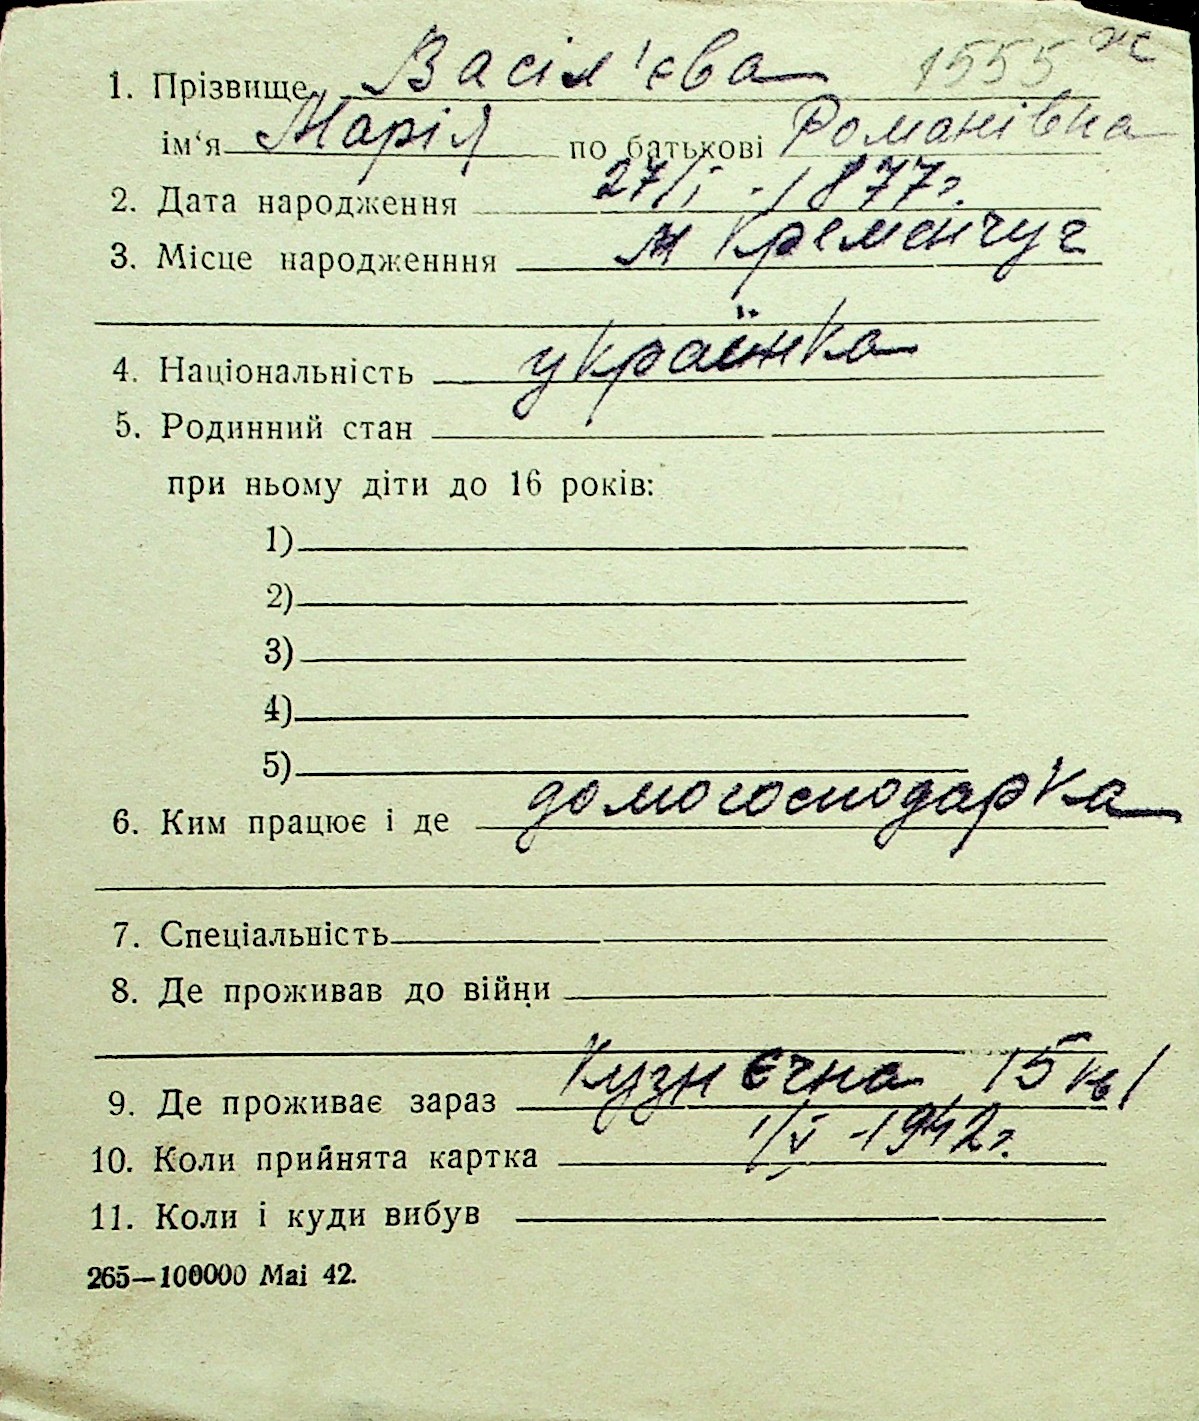 1. Прізвище Васіл'єва 1555 ж
ім‘я Марія по батькові Романівна
2. Дата народження 27/I - 1877г.
3. Місце народженння м Кременчуг
4. Національність українка
5. Родинний стан
при ньому діти до 16 років:
1)
2)
3)
4)
5)
6. Ким працює і де домогосподарка
7. Спеціальність
8. Де проживав до війни
9. Де проживає зараз Кузнєчна 15 кв 1
10. Коли прийнята картка 1/V -1942г.
11. Коли і куди вибув
265—100000 Mai 42.